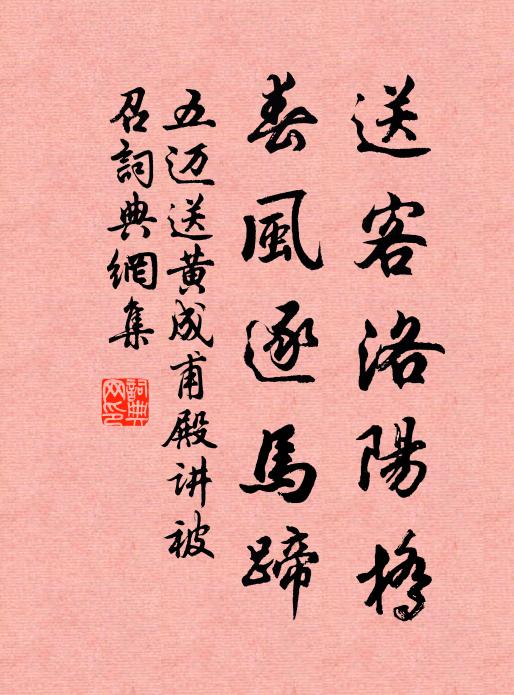 送客洛陽橋
春風逐馬蹄
五迈送黄成甫殿讲被
召詞典網集
詞典
网印